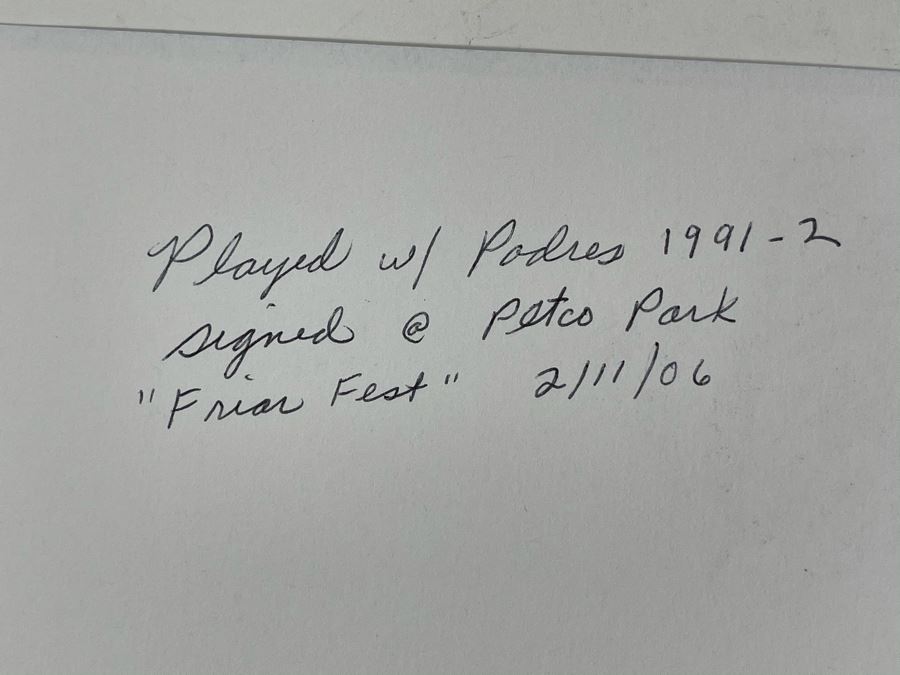 Played w/ Padres 1991-2
signed @ Petco Park
"Friar Fest" 2/11/06